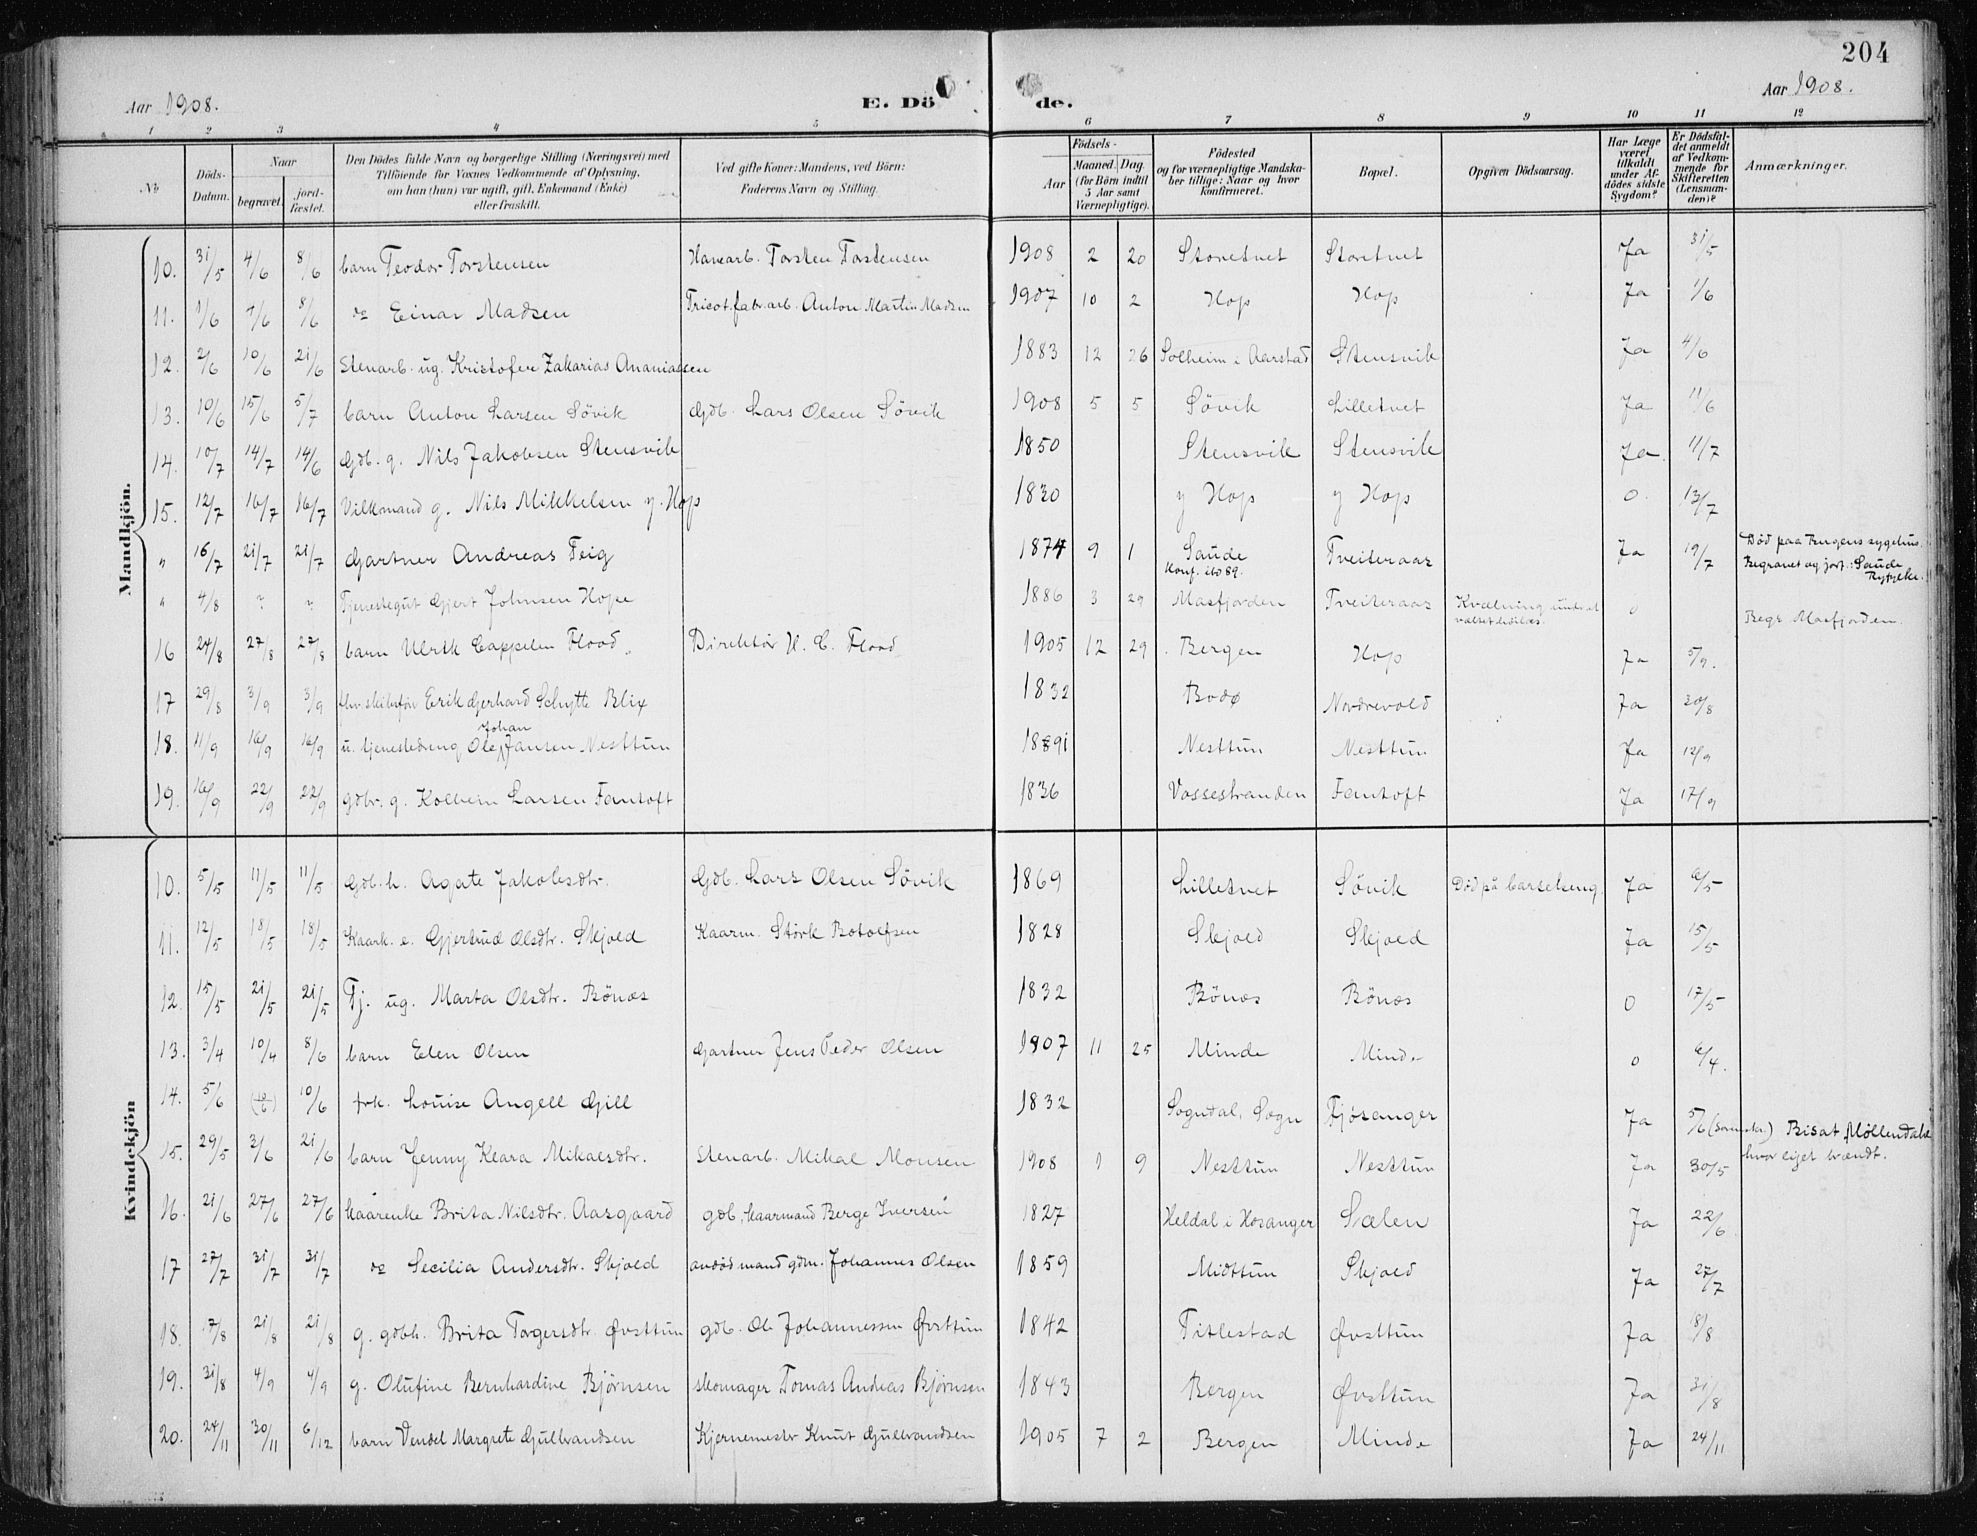 204
Aar 1908. E. Dö de. Aar 1908.
1 2 3 4 5 6 7 8 9 10 11 12
No Döds-Datum. Naar begravet. jord-fæstet. Den Dödes fulde Navn og borgerlige Stilling (Næringsvei) med Tilföiende for Voxnes Vedkommende af Oplysning, om han (hun) var ugift, gift, Enkemand (Enke) eller fraskilt. Ved gifte Koner: Mandens, ved Börn: Faderens Navn og Stilling. Födsels- Aar Maaned. Dag. (for Börn indtil 5 Aar samt Værnepligtige). Födested og for værnepligtige Mandskaber tillige: Naar og hvor konfirmeret. Bopæl. Opgiven Dödsaarsag. Har Læge været tilkaldt under Afdödes sidste Sygdom? Er Dödsfaldet anmeldt af Vedkommende for Skifteretten (Lensmanden)? Anmærkninger.
Mandkjön.
10. 31/5 4/6 8/6 barn Teodor Torstensen Havearb. Torsten Torstensen 1908 2 20 Storetvet Storetvet Ja 31/5
11. 1/6 7/6 8/6 do Einar Madsen Tricot.fabr.arb. Anton Martin Madsen 1907 10 2 Hop Hop Ja 1/6
12. 2/6 10/6 21/6 Stenarb. ug. Kristofer Zakarias Ananiassen 1883 12 26 Solheim i Aarstad Stensvik Ja 4/6
13. 10/6 15/6 5/7 barn Anton Larsen Sövik Gdb. Lars Olsen Sövik 1908 5 5 Sövik Lilletvet Ja 11/6
14. 10/7 14/7 14/6 Gdb. g. Nils Jakobsen Stensvik 1850 Stensvik Stensvik Ja. 11/7
15. 12/7 16/7 16/7 Vilkmand g. Nils Mikkelsen y. Hop 1830 y Hop y Hop 0. 13/7
" 16/7 21/7 21/7 Gartner Andreas Feig 1874 9 1 Saude Konf. ibd 89. Tveiteraas Ja 19/7 Död paa Bergens sygehus. Begravet og jort. i Saude Ryfylke.
" 4/8 ? ? Tjenestegut Gjert Johnsen Hope 1886 3 29 Masfjorden Tveiteraas Kvælning under et væltet hölæs. 0 Begr Masfjorden.
16 24/8 27/8 27/8 barn Ulrik Cappelen Flood. Direktör H. C. Flood 1905 12 29 Bergen Hop Ja 5/9.
17 29/8 3/9 3/9 fhv. skibsför Erik Gjerhard Schytte Blix 1832 Bodø Nordrevold Ja 30/8
18. 11/9 16/9 16/9 u. tjenestedreng Ole Johan Jansen Nesttun 1891 Nesttun Nesttun Ja 12/9
19. 16/9 22/9 22/9 gdbr. g. Kolbein Larsen Fantoft 1836 Vossestranden Fantoft Ja 17/9
Kvindekjön
10. 5/5 11/5 11/5 Gdb. h. Agate Jakobsdtr. Gdb. Lars Olsen Sövik 1869 Lilletvet Sövik Död på barselseng. Ja 6/5
11. 12/5 18/5 18/5 Kaark. e. Gjertrud Olsdtr. Skjold Kaarm. Störk Botolfsen 1828 Skjold Skjold Ja 15/5
12. 15/5 21/5 21/5 Tj. ug. Marta Olsdtr. Bönæs 1832 Bönæs Bönæs 0 17/5
13. 3/4 10/4 8/6 barn Elen Olsen Gartner Jens Peder Olsen 1907 11 25 Minde Minde 0 6/4.
14. 5/6 10/6 frk. Louise Angell Gjill 1832 Sogndal, Sogn Fjösanger Ja 5/6 Bisat Möllendal hvor liget brændt.
15. 29/5 3/6 21/6 barn Jenny Klara Mikalsdtr. Stenarb. Mikal Monsen 1908 1 9 Nesttun Nesttun Ja 30/5
16. 21/6 27/6 27/6 kaarenke Brita Nilsdtr. Aasgaard gdb., kaarmand Berge Iversen 1827 Heldal i Hosanger Sælen Ja 22/6
17 27/7 31/7 31/7 do Secilia Andersdtr. Skjold avdöd mand gdm. Johannes Olsen 1859 Midttun Skjold Ja 27/7
18. 17/8 21/8 21/8 g. gdbh. Brita Torgersdtr. Øvsttun gdb. Ole Johannessen Øvsttun 1842 Titlestad Øvsttun Ja 18/8
19. 31/8 4/9 4/9 g. Olufine Bernhardine Bjørnsen skomager Tomas Andreas Bjørnsen 1843 Bergen Øvsttun Ja 31/8
20. 24/11 30/11 6/12 barn Vendel Margrete Gulbrandsen Kjernemester Knut Gulbrandsen 1905 7 2 Bergen Minde Ja 24/11